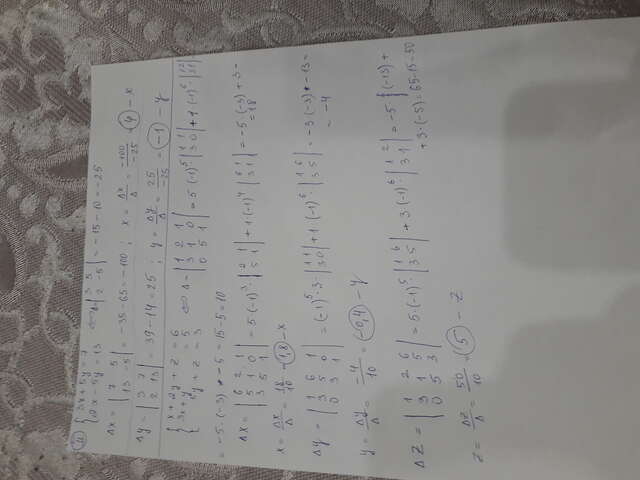 4) { 3x+5y=7
2x-5y=13 <=> Δ=|3 5; 2 -5| = -15-10=-25
Δx = |7 5; 13 -5| = -35-65=-100 ; x = Δx/Δ = -100/-25 = 4 - x
Δy = |3 7; 2 13| = 39-14=25 ; y = Δy/Δ = 25/-25 = -1 - y
{ x+2y+z=6
3x+y =5
5y+z=3 <=> Δ= |1 2 1; 3 1 0; 0 5 1| = 5·(-1)^5·|1 1; 3 0| + 1·(-1)^6·|1 2; 3 1|
= -5·(-3) + -5 = 15-5=10
Δx = |6 2 1; 5 1 0; 3 5 1| = 5·(-1)^3·|2 1; 5 1| + 1·(-1)^4·|6 1; 3 1| = -5·(-3)+3=
=18
x = Δx/Δ = 18/10 = 1,8 - x
Δy = |1 6 1; 3 5 0; 0 3 1| = (-1)^5·3·|1 1; 3 0| + 1·(-1)^6·|1 6; 3 5| = -3·(-3)+-13=
= -4
y = Δy/Δ = -4/10 = -0,4 - y
ΔZ = |1 2 6; 3 1 5; 0 5 3| = 5·(-1)^5·|1 6; 3 5| + 3·(-1)^6·|1 2; 3 1| = -5·(-13)+
+3·(-5)=65-15=50
Z = ΔZ/Δ = 50/10 = 5 - Z